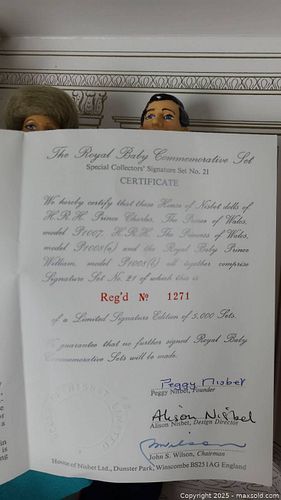 The Royal Baby Commemorative Set
Special Collectors' Signature Set No. 21
CERTIFICATE
We hereby certify that these House of Nisbet dolls of
H.R.H. Prince Charles, The Prince of Wales,
model P1007, H.R.H. The Princess of Wales,
model P1008(a) and the Royal Baby Prince
William, model P1008(b) all together comprise
Signature Set No. 21 of which this is
Reg'd No 1271
of a Limited Signature Edition of 5,000 Sets.
To guarantee that no further signed Royal Baby
Commemorative Sets will be made.
Peggy Nisbet
Peggy Nisbet, Founder
Alison Nisbet
Alison Nisbet, Design Director
John S. Wilson, Chairman
House of Nisbet Ltd., Dunster Park, Winscombe BS25 1AG England
Copyright 2025 - maxsold.com